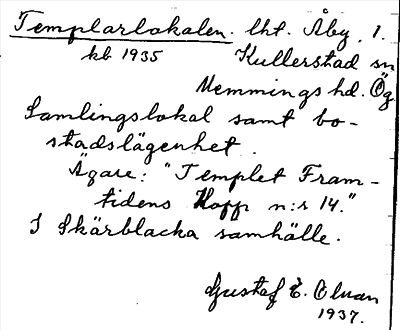 Templarlokalen. lht. Åby, 1.
kb 1935 Kullerstad sn
Memmings hd. Ög
Samlingslokal samt bo-
stadslägenhet.
Ägare: "Templet Fram-
tidens Hopp n:r 14."
I Skärblacka samhälle.
Gustaf E.
1937.